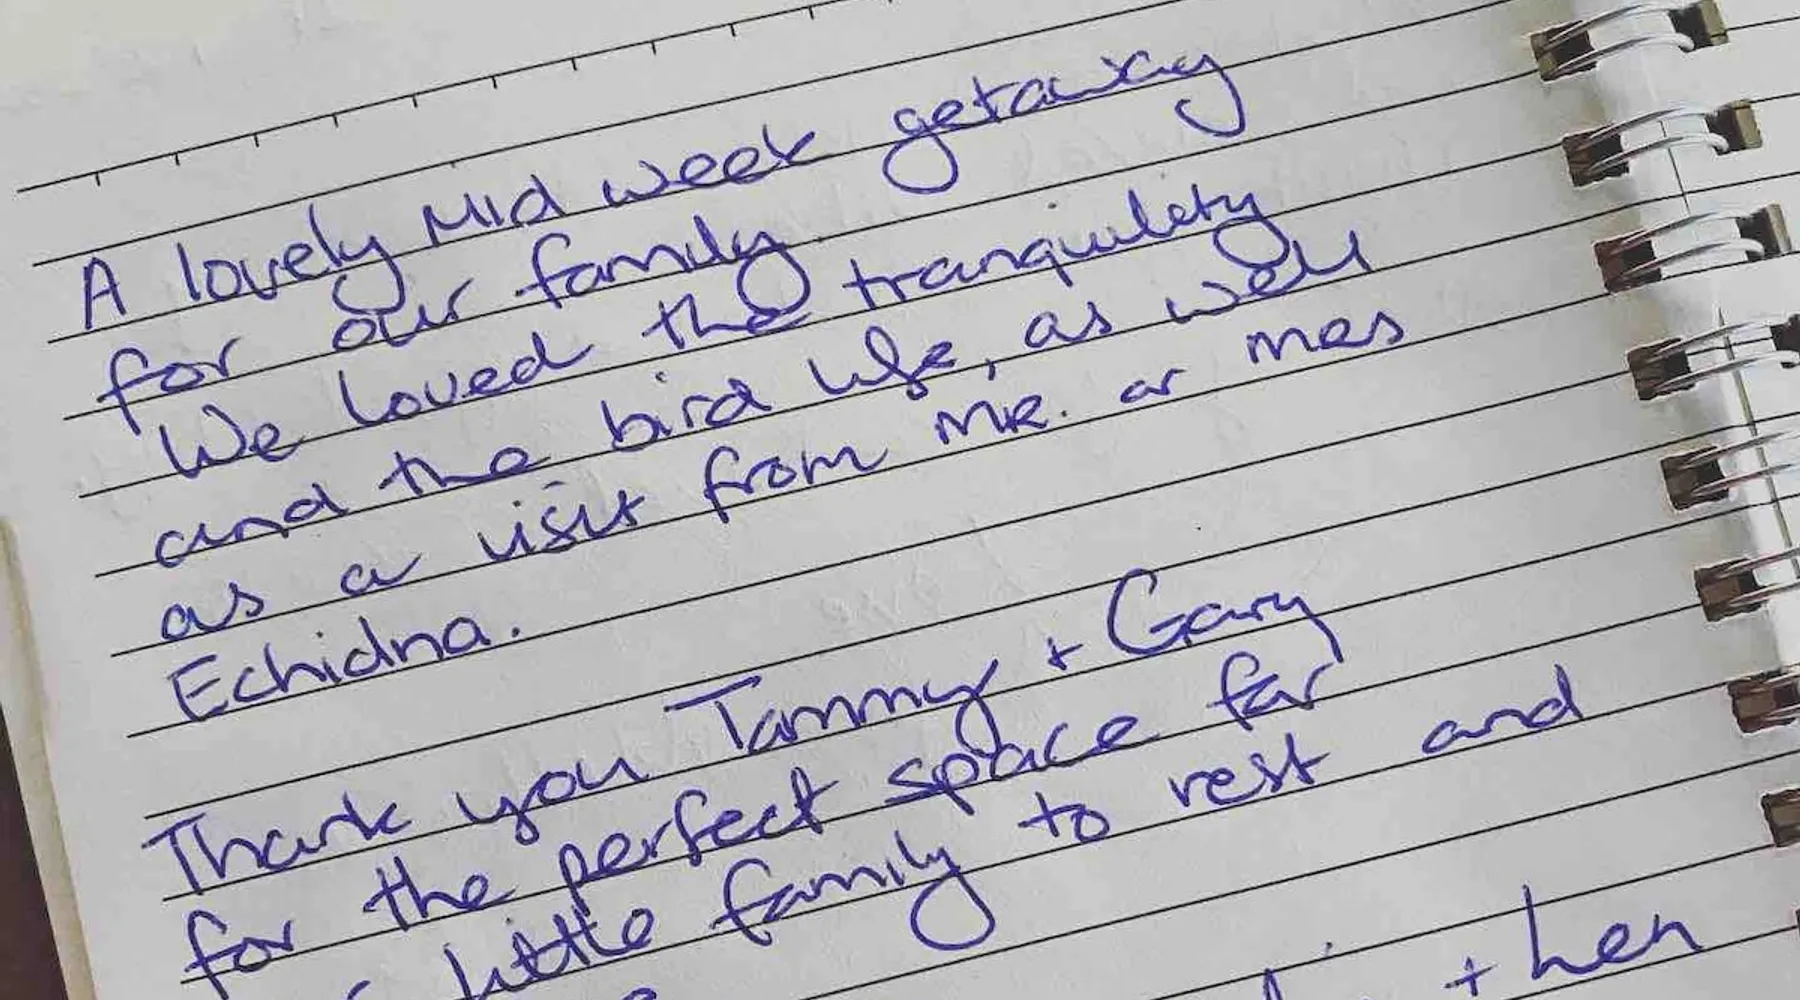 A lovely Mid week getaway
for our family.
We loved the tranquility
and the bird life, as well
as a visit from MR. or mrs
Echidna.
Thank you Tammy + Gary
for the perfect space for
little family to rest and
+ Len